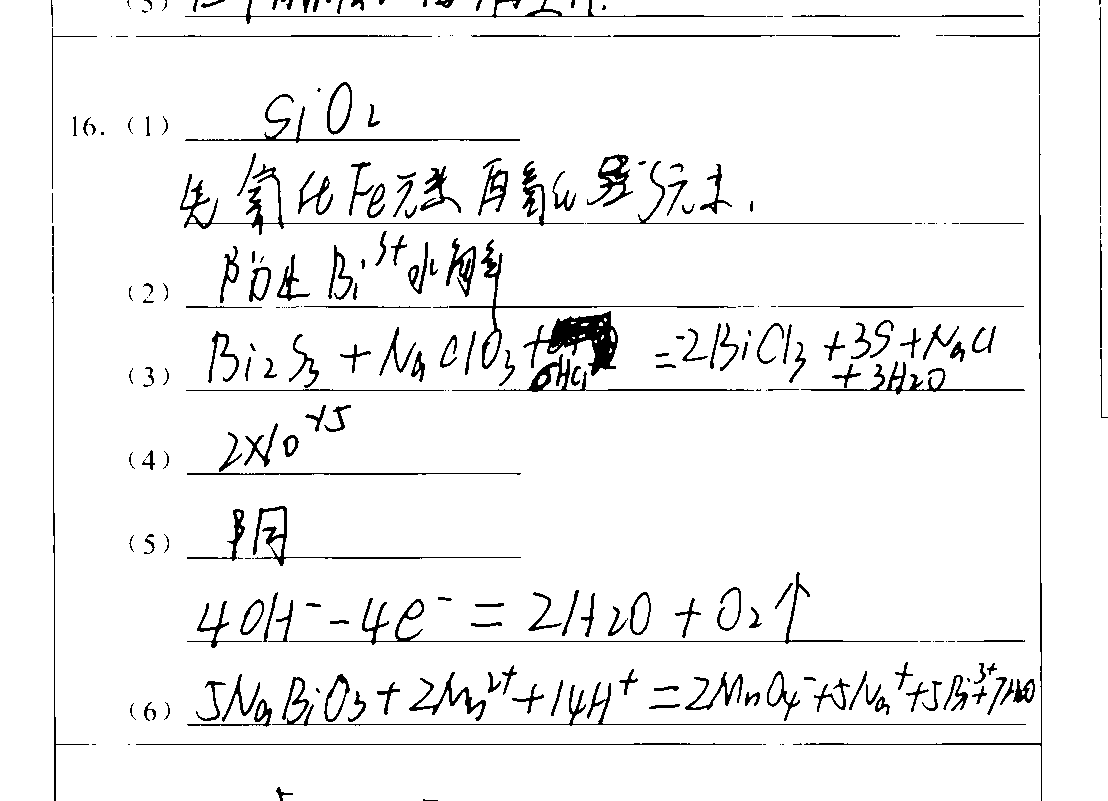 16. (1) SiO2
先氧化Fe元素再氧化S元素.
(2) 防止Bi3+水解
(3) Bi2S3 + NaClO3 + 6HCl = 2BiCl3 + 3S + NaCl
+ 3H2O
(4) 2×10-15
(5) 阴
4OH- - 4e- = 2H2O + O2↑
(6) 5NaBiO3 + 2Mn2+ + 14H+ = 2MnO4- + 5Na+ + 5Bi3+ + 7H2O